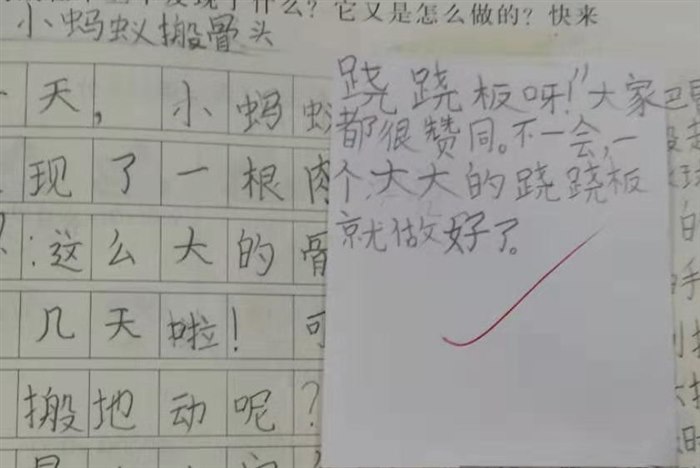 什么？它又是怎么做的？快来
小蚂蚁搬骨头
天，小蚂
现了一根肉
：这么大的骨
几天啦！可
搬地动呢？
跷跷板呀！”大家
都很赞同。不一会，一
个大大的跷跷板
就做好了。
的
手